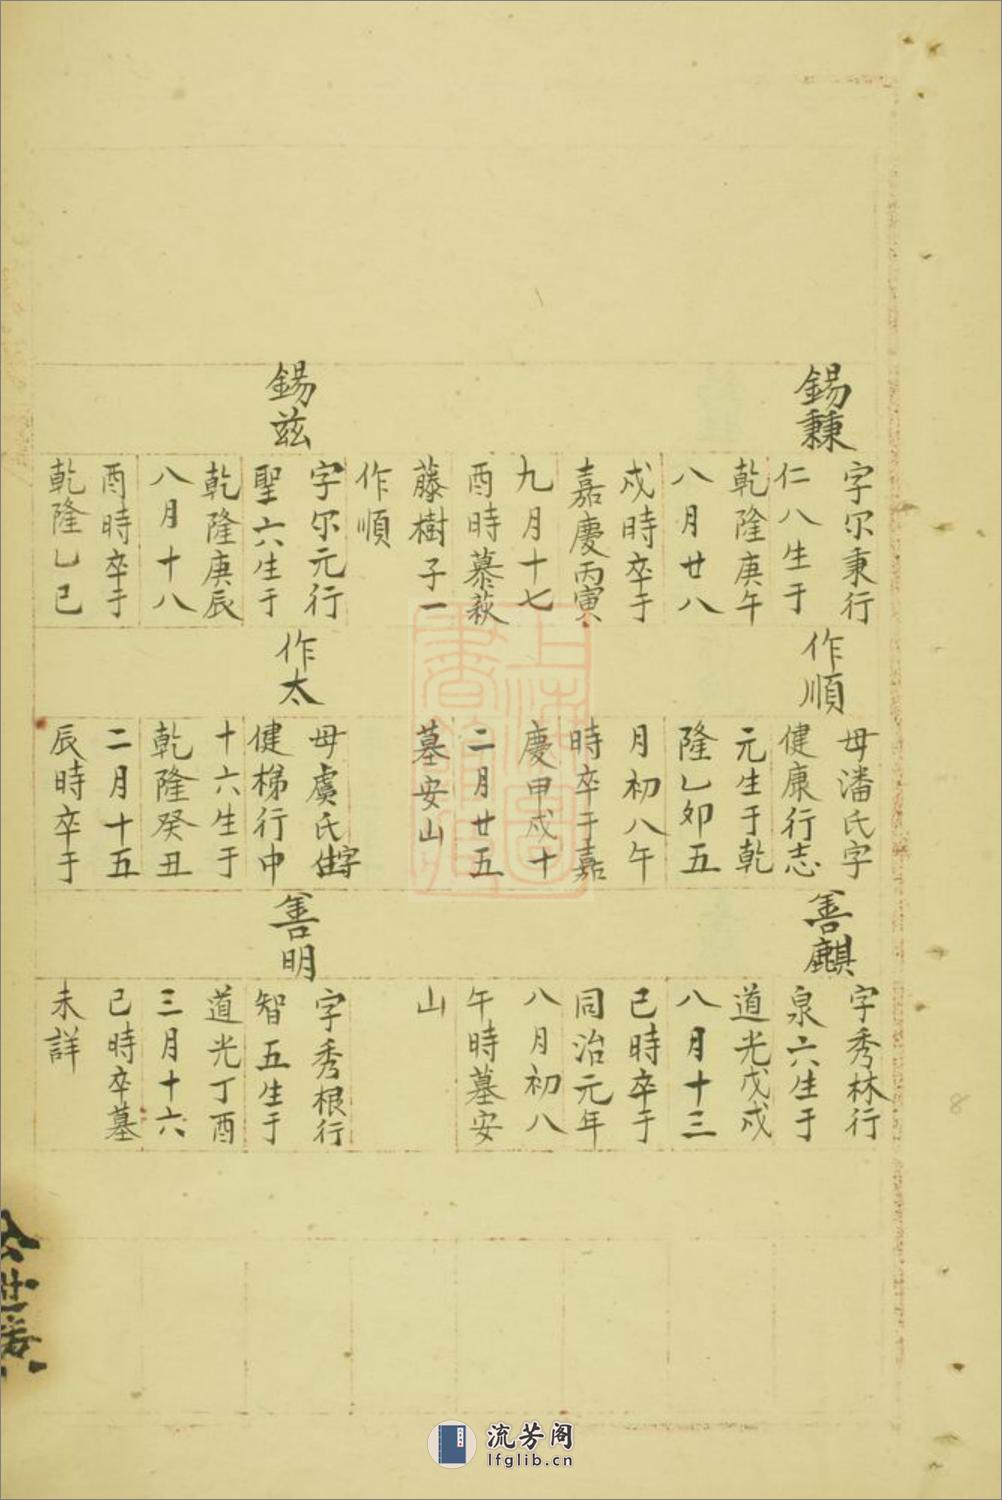 錫
字尔秉行
仁八生于
乾隆庚午
八月廿八
戌時卒于
嘉慶丙寅
九月十七
酉時慕萩
藤樹子一
作順
錫兹
字尔元行
聖六生于
乾隆庚辰
八月十八
酉時卒于
乾隆乙巳
作順
母潘氏字
健康行志
元生于乾
隆乙卯五
月初八午
時卒于嘉
慶甲戌十
二月廿五
墓安山
作太
母虞氏字
健梯行中
十六生于
乾隆癸丑
二月十五
辰時卒于
善麒
字秀林行
泉六生于
道光戊戌
八月十三
已時卒于
同治元年
八月初八
午時墓安
山
善明
字秀根行
智五生于
道光丁酉
三月十六
已時卒墓
未詳
上海圖
書館藏
8
流芳阁
lfglib.cn